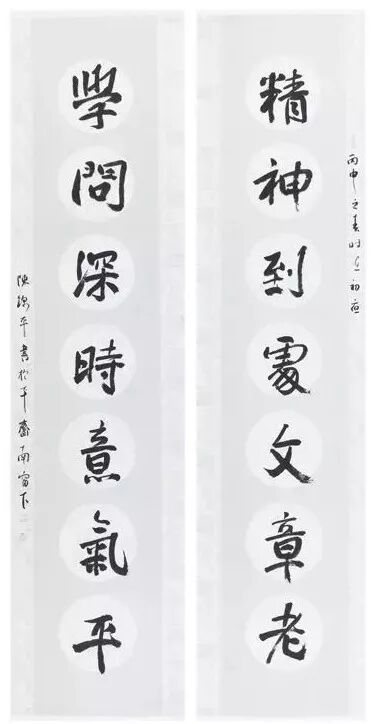 精神到處文章老
丙申之春時在初夜
學問深時意氣平
陳海平書於平齋南窗下